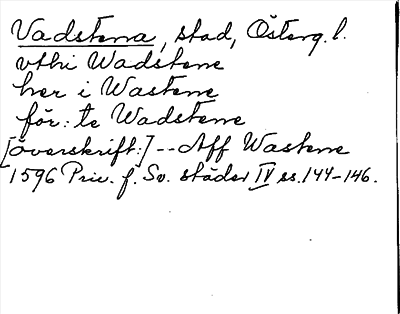 Vadstena, stad, Österg.l.
vthi Wadstene
her i Wastene
för: te Wadstene
[överskrift:] -- Aff Wastene
1596 Priv. f. Sv. städer IV ss. 144-146.